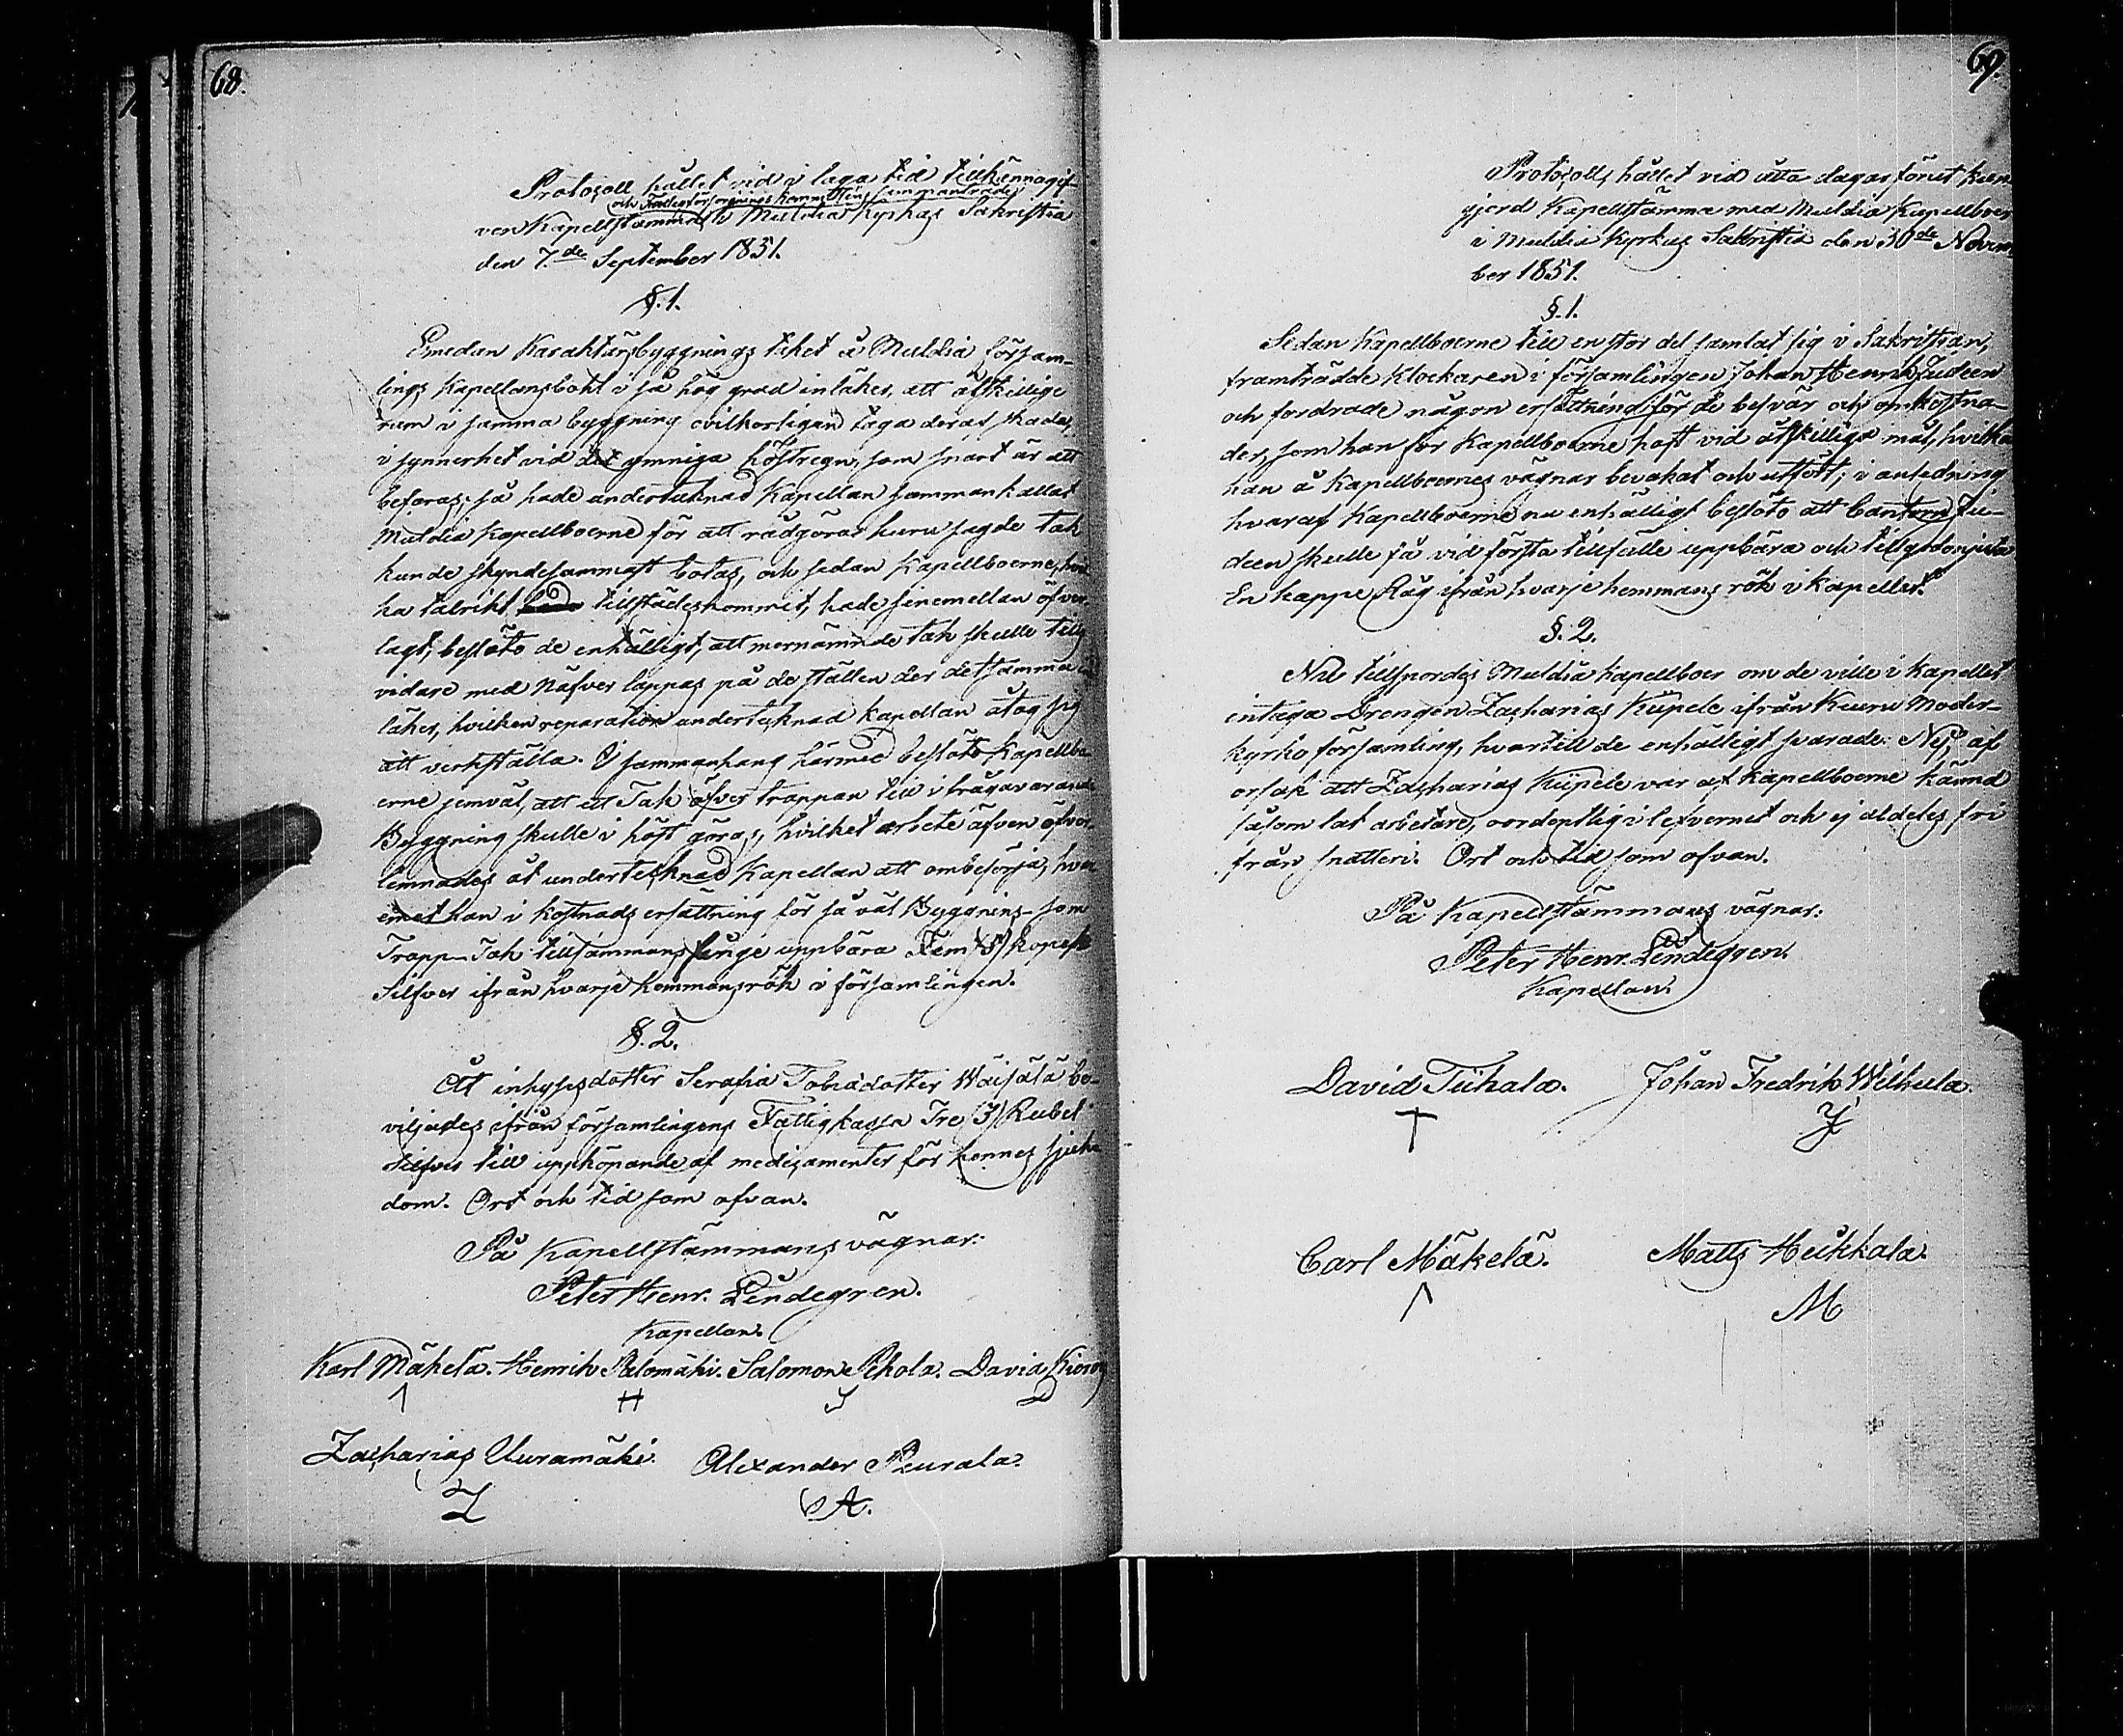 68.
Protocoll hållet vid i laga tid tillkännagif-
och Fattigförsörjnings Committéns sammanträde
ven Kapellstämma i Muldia Kyrkas Sakristia
den 7de September 1851.
§. 1.
Emedan Karaktärsbyggnings taket å Muldia försam-
lings Kapellansbohl i så hög grad inläker, att åtskillige
rum i samma byggning ovilkorligen taga deraf skada,
i synnerhet vid det ymniga höstregn, som snart är att
befaras; så hade undertecknad Kapellan sammankallat
Muldia Kapellboerne för att rådgöra huru sagde tak
kunde skyndesammast botas, och sedan Kapellboerne, hvil
ka talrikt tillstädeskommit, hade sinemellan öfver-
lagt, beslöto de enhälligt, att mernämnde tak skulle tills
vidare med Näfver lappas på de ställen der detsamma in
läker, hvilken reparation undertecknad Kapellan åtog sig
att verkställa. I sammanhang härmed beslöto Kapellbo
erne jemväl, att ett Tak öfver trappan till ifrågavarande
Byggning skulle i höst göras, hvilket arbete äfven öfver-
lemnades åt undertecknad Kapellan att ombesörja, hvar
emot han i kostnads ersättning för så väl Byggnings- som
Trapp-Tak tillsammans finge uppbära Fem (5) kopek
Silfver ifrån hvarje hemmansrök i församlingen.
§. 2.
Åt inhysesdotter Serafia Tobiadotter Waisälä be-
viljades ifrån församlingens Fattigkassa Tre (3) Rubel
Silfver till uppköpande af medicamenter för hennes sjuk
dom. Ort och tid som ofvan.
På Kapellstämmans vägnar:
Peter Henr. Lindegren.
Kapellan.
Karl Mäkelä. Henrik Palomäki. Salomon Pihola. David
Zacharias Uuramäki. Alexander Peurala.
Z A.
69.
Protocoll, hållet vid åtta dagar förut kun-
gjord Kapellstämma med Muldia Kapellboer
i Muldia Kyrkas Sakristia den 30de Novem
ber 1851.
§. 1.
Sedan Kapellboerne till en stor del samlat sig i Sakristian,
framträdde Klockaren i församlingen Johan Henrik Judeen
och fordrade någon ersättning för de besvär och omkostna-
der, som han för Kapellboerne haft vid åtskilliga mål, hvilka
han å Kapellboernes vägnar bevakat och utfört; i anledning
hvaraf Kapellboerne nu enhälligt beslöto att Cantorn Ju-
deen skulle få vid första tillfälle uppbära och tillgodonjuta
En kappe Råg ifrån hvarje hemmans rök i kapellet.
§. 2.
Nu tillspordes Muldia Kapellboer om de ville i Kapellet
intaga Drengen Zacharias Kiipele ifrån Keuru Moder-
kyrko församling, hvartill de enhälligt svarade: Nej, af
orsak att Zacharias Kiipele var af Kapellboerne känd
såsom lat arbetare, oordentlig i lefvernet och ej aldeles fri
från snatteri. Ort och tid som ofvan.
På Kapellstämmans vägnar:
Peter Henr. Lindegren.
Kapellan.
David Tiihala. Johan Fredrik Wilkula.
Carl Mäkelä. Matts Heikkala.
M